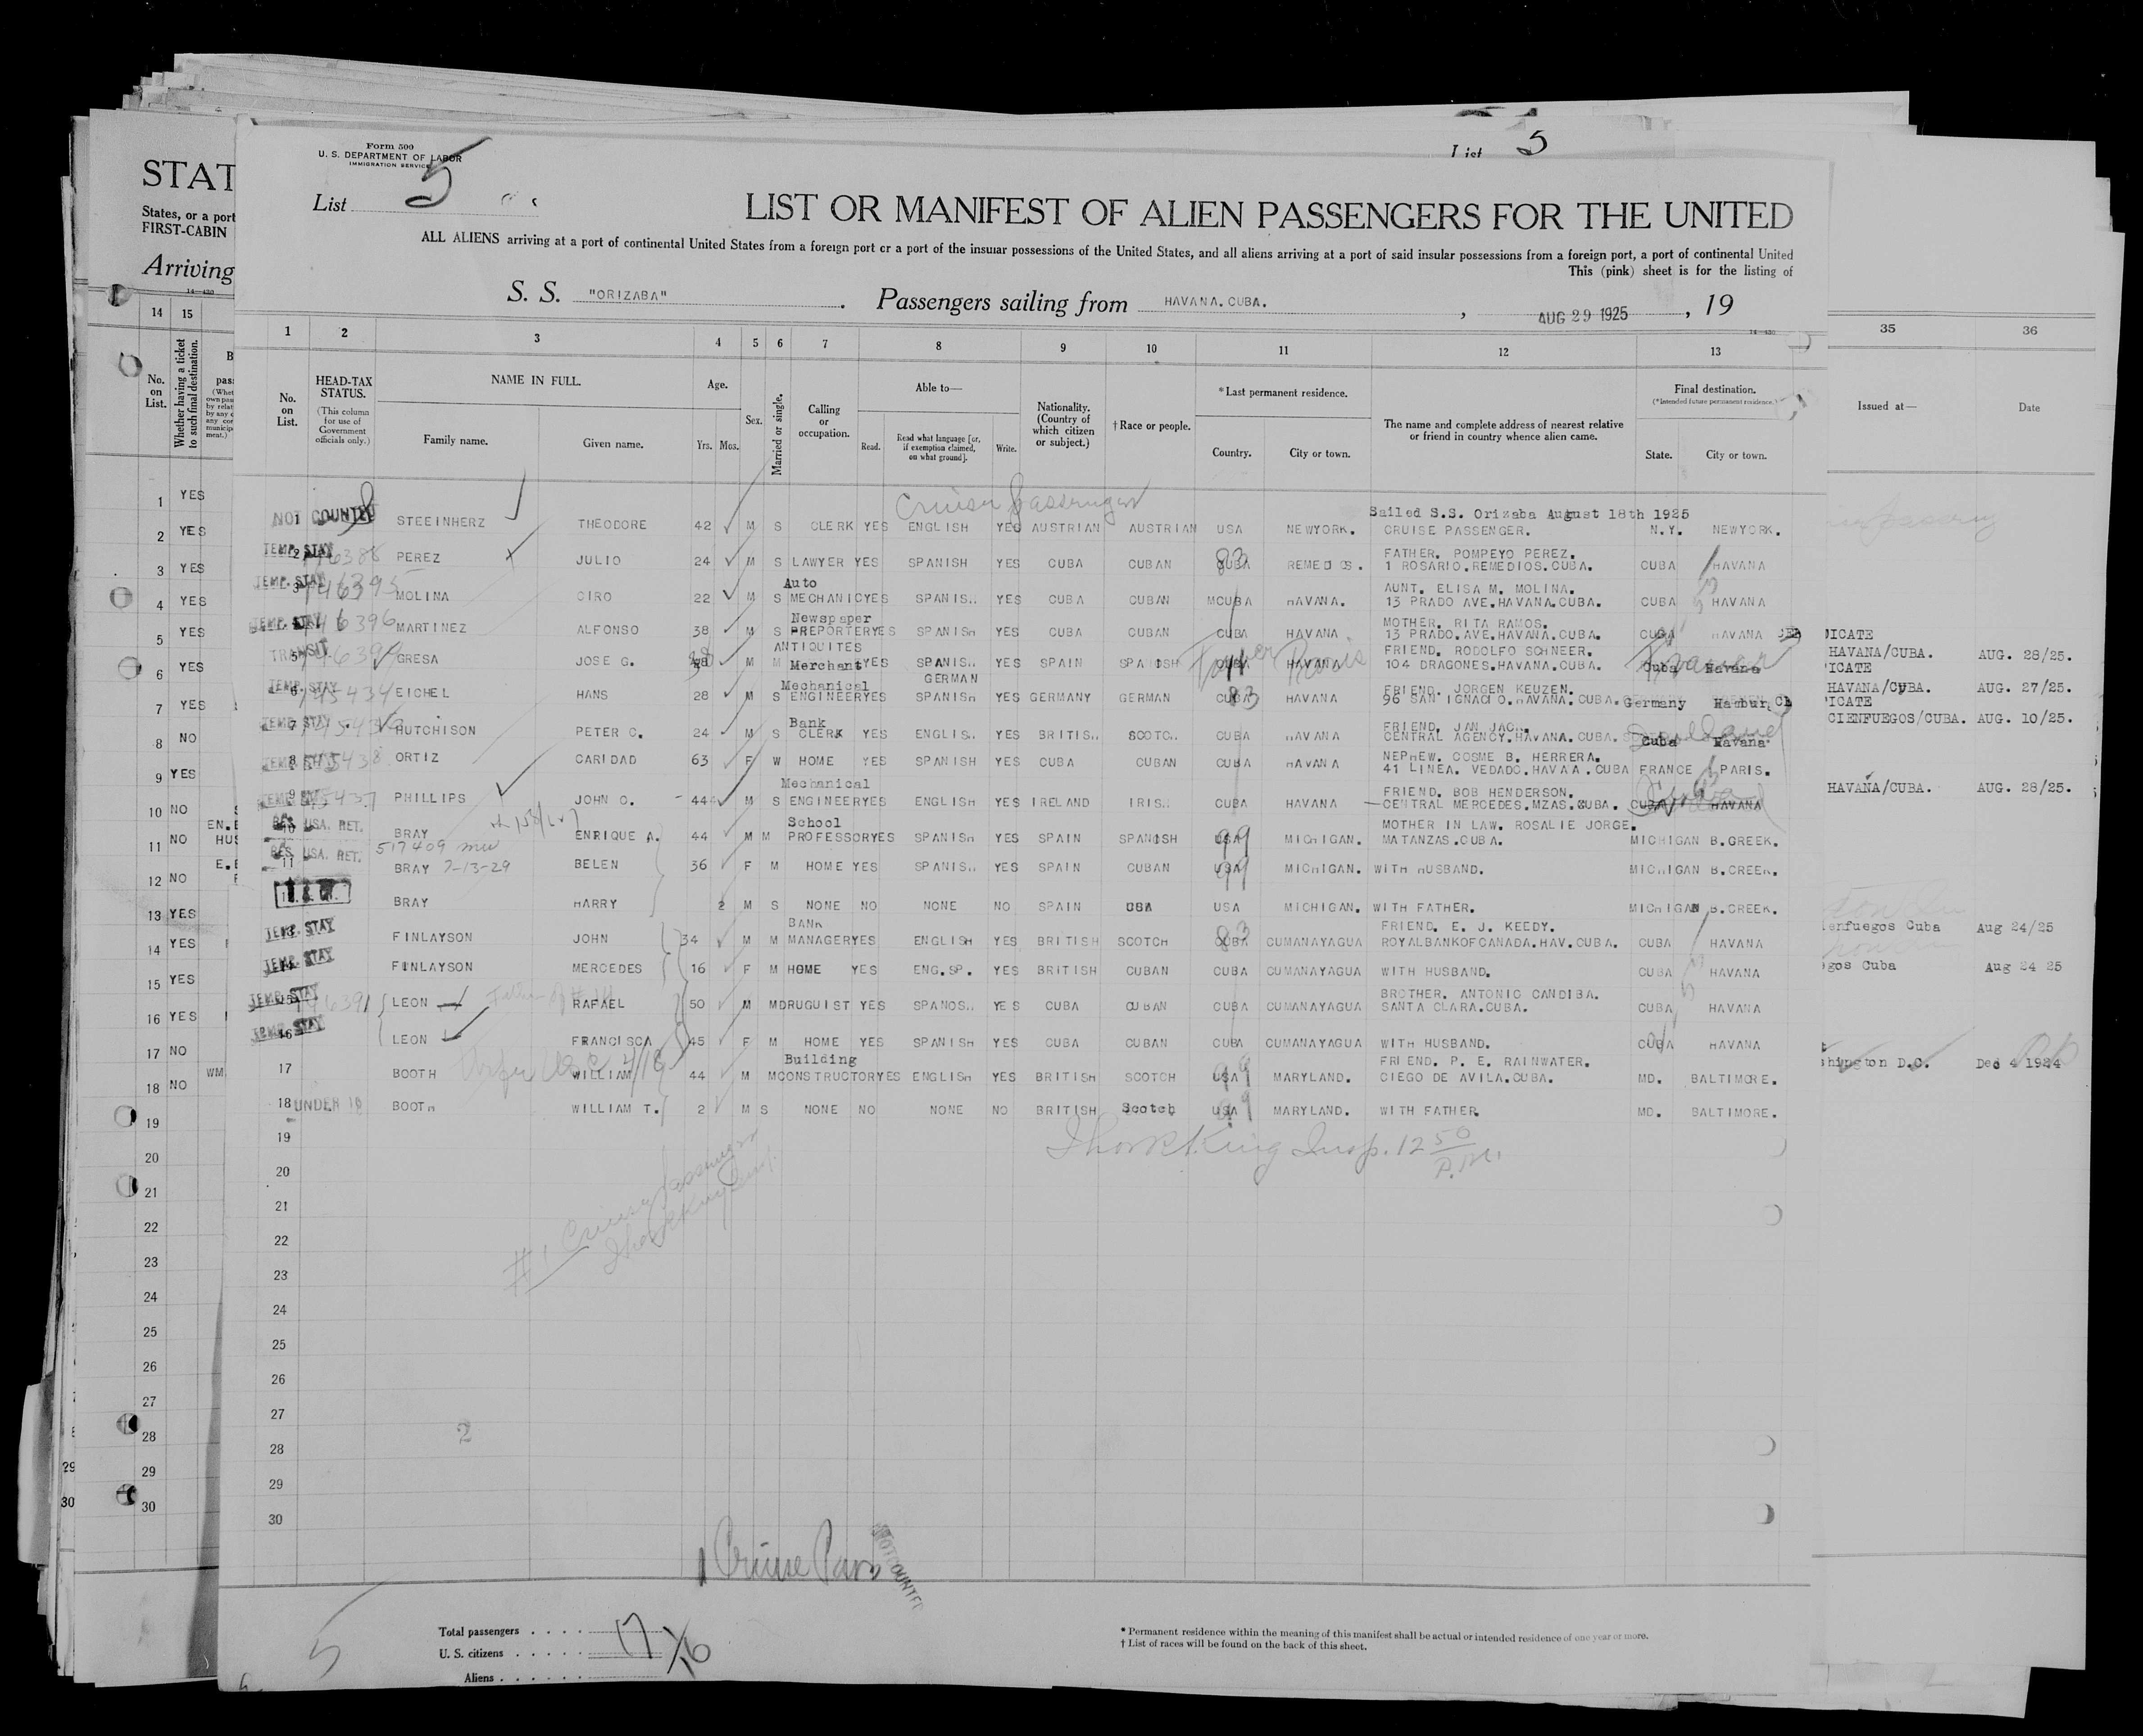 Form 500
U. S. DEPARTMENT OF LABOR
IMMIGRATION SERVICE
List 5
List 5
STAT
States, or a port
FIRST-CABIN
Arriving
LIST OR MANIFEST OF ALIEN PASSENGERS FOR THE UNITED
ALL ALIENS arriving at a port of continental United States from a foreign port or a port of the insular possessions of the United States, and all aliens arriving at a port of said insular possessions from a foreign port, a port of continental United
This (pink) sheet is for the listing of
S. S. "ORIZABA" Passengers sailing from HAVANA.CUBA. , AUG 29 1925 , 19
14 15 1 2 3 4 5 6 7 8 9 10 11 12 13 35 36
No. on List. Whether having a ticket to such final destination.
No. on List. HEAD-TAX STATUS. (This column for use of Government officials only.) NAME IN FULL. Family name. Given name. Age. Yrs. Mos. Sex. Married or single. Calling or occupation. Able to— Read. Read what language [or, if exemption claimed, on what ground]. Write. Nationality. (Country of which citizen or subject.) † Race or people. * Last permanent residence. Country. City or town. The name and complete address of nearest relative or friend in country whence alien came. Final destination. (* Intended future permanent residence.) State. City or town. Issued at— Date
Cruiser passenger
Sailed S.S. Orizaba August 18th 1925
1 NOT COUNTED STEEINHERZ THEODORE 42 M S CLERK YES ENGLISH YES AUSTRIAN AUSTRIAN USA NEWYORK. CRUISE PASSENGER. N.Y. NEWYORK.
FATHER. POMPEYO PEREZ.
2 TEMP. STAY PEREZ JULIO 24 M S LAWYER YES SPANISH YES CUBA CUBAN CUBA REMEDIOS. 1 ROSARIO.REMEDIOS.CUBA. CUBA HAVANA
Auto AUNT. ELISA M. MOLINA.
3 TEMP. STAY 46395 MOLINA CIRO 22 M S MECHANIC YES SPANISH YES CUBA CUBAN CUBA HAVANA. 13 PRADO AVE.HAVANA.CUBA. CUBA HAVANA
Newspaper MOTHER. RITA RAMOS.
4 TEMP. STAY 46396 MARTINEZ ALFONSO 38 M S REPORTER YES SPANISH YES CUBA CUBAN CUBA HAVANA 13 PRADO.AVE.HAVANA.CUBA. CUBA HAVANA
ANTIQUITES FRIEND. RODOLFO SCHNEER.
5 TRANSIT GRESA JOSE G. M M Merchant YES SPANISH YES SPAIN SPANISH CUBA HAVANA 104 DRAGONES.HAVANA.CUBA. Cuba Havana
Mechanical GERMAN FRIEND. JORGEN KEUZEN.
6 TEMP. STAY 45434 EICHEL HANS 28 M S ENGINEER YES SPANISH YES GERMANY GERMAN CUBA HAVANA 96 SAN IGNACIO.HAVANA.CUBA. Germany Hamburg
Bank FRIEND. JAN JACK.
7 TEMP. STAY HUTCHISON PETER C. 24 M S CLERK YES ENGLISH YES BRITISH SCOTCH CUBA HAVANA CENTRAL AGENCY.HAVANA.CUBA. Cuba Havana
NEPHEW. COSME B. HERRERA.
8 ORTIZ CARIDAD 63 F W HOME YES SPANISH YES CUBA CUBAN CUBA HAVANA 41 LINEA. VEDADO.HAVAA.CUBA FRANCE PARIS.
Mechanical FRIEND. BOB HENDERSON.
9 TEMP. STAY PHILLIPS JOHN O. 44 M S ENGINEER YES ENGLISH YES IRELAND IRISH CUBA HAVANA CENTRAL MERCEDES.MZAS.CUBA. CUBA HAVANA
School MOTHER IN LAW. ROSALIE JORGE.
10 RES. USA. RET. BRAY ENRIQUE A. 44 M M PROFESSOR YES SPANISH YES SPAIN SPANISH USA MICHIGAN. MATANZAS.CUBA. MICHIGAN B.CREEK.
517409
11 RES. USA. RET. BRAY 7-13-29 BELEN 36 F M HOME YES SPANISH YES SPAIN CUBAN USA MICHIGAN. WITH HUSBAND. MICHIGAN B.CREEK.
BRAY HARRY 2 M S NONE NO NONE NO SPAIN USA USA MICHIGAN. WITH FATHER. MICHIGAN B.CREEK.
BANK FRIEND. E. J. KEEDY.
TEMP. STAY FINLAYSON JOHN 34 M M MANAGER YES ENGLISH YES BRITISH SCOTCH CUBA CUMANAYAGUA ROYALBANKOFCANADA.HAV.CUBA. CUBA HAVANA
TEMP. STAY FINLAYSON MERCEDES 16 F M HOME YES ENG.SP. YES BRITISH CUBAN CUBA CUMANAYAGUA WITH HUSBAND. CUBA HAVANA
BROTHER. ANTONIO CANDIBA.
TEMP. STAY LEON RAFAEL 50 M M DRUGUIST YES SPANOSH YES CUBA CUBAN CUBA CUMANAYAGUA SANTA CLARA.CUBA. CUBA HAVANA
16 TEMP. STAY LEON FRANCISCA 45 F M HOME YES SPANISH YES CUBA CUBAN CUBA CUMANAYAGUA WITH HUSBAND. CUBA HAVANA
Building FRIEND. P. E. RAINWATER.
17 BOOTH WILLIAM 44 M M CONSTRUCTOR YES ENGLISH YES BRITISH SCOTCH USA MARYLAND. CIEGO DE AVILA.CUBA. MD. BALTIMORE.
18 UNDER 16 BOOTH WILLIAM T. 2 M S NONE NO NONE NO BRITISH Scotch USA MARYLAND. WITH FATHER. MD. BALTIMORE.
King Insp. 12 50 P.M.
19
20
21
22
23
24
25
26
27
28
29
30
#1 Cruiser passenger
2
1 Cruise Pass
NOT COUNTED
Total passengers . . . . 17
U. S. citizens . . . . .
Aliens . . . . . .
* Permanent residence within the meaning of this manifest shall be actual or intended residence of one year or more.
† List of races will be found on the back of this sheet.
5
1 YES
2 YES
3 YES
4 YES
5 YES
6 YES
7 YES
8 NO
9 YES
10 NO
11 NO
12 NO
13 YES
14 YES
15 YES
16 YES
17 NO
18 NO
19
20
21
22
23
24
25
26
27
28
29
30
ICATE
HAVANA/CUBA. AUG. 28/25.
ICATE
HAVANA/CUBA. AUG. 27/25.
ICATE
CIENFUEGOS/CUBA. AUG. 10/25.
HAVANA/CUBA. AUG. 28/25.
enfuegos Cuba Aug 24/25
gos Cuba Aug 24 25
hington D.C. Dec 4 1924